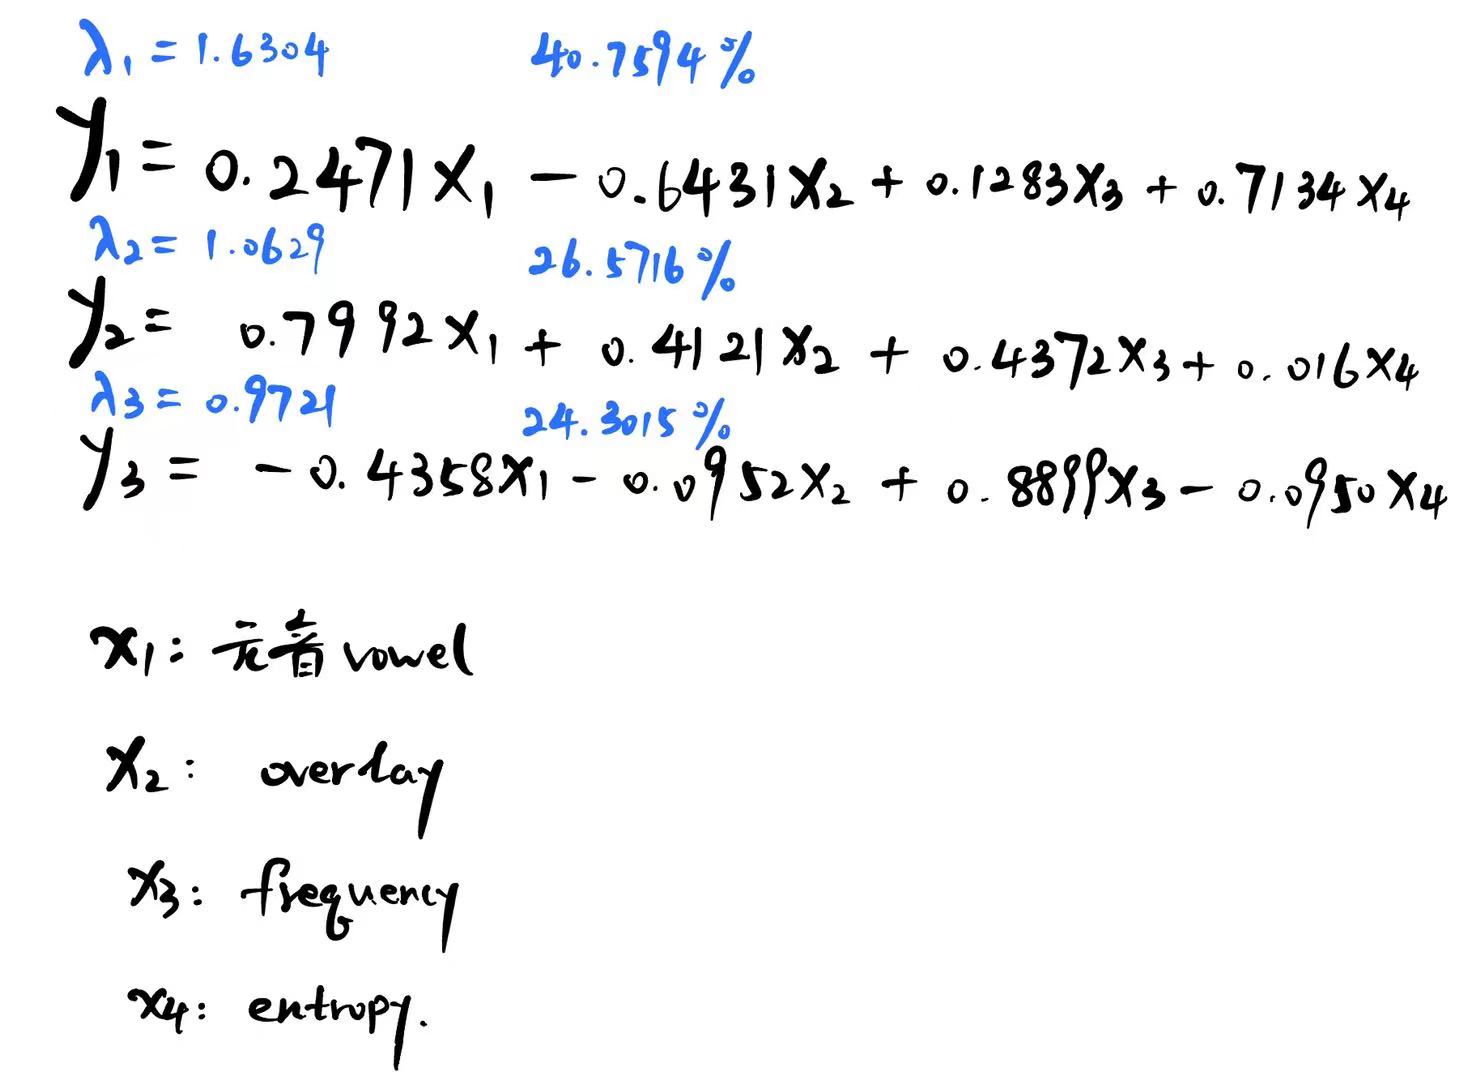 λ₁ = 1.6304 40.7594%
y₁ = 0.2471x₁ - 0.6431x₂ + 0.1283x₃ + 0.7134x₄
λ₂ = 1.0629 26.5716%
y₂ = 0.7992x₁ + 0.4121x₂ + 0.4372x₃ + 0.016x₄
λ₃ = 0.9721 24.3015%
y₃ = -0.4358x₁ - 0.0952x₂ + 0.8899x₃ - 0.0950x₄
x₁: 元音 vowel
x₂: overlay
x₃: frequency
x₄: entropy.